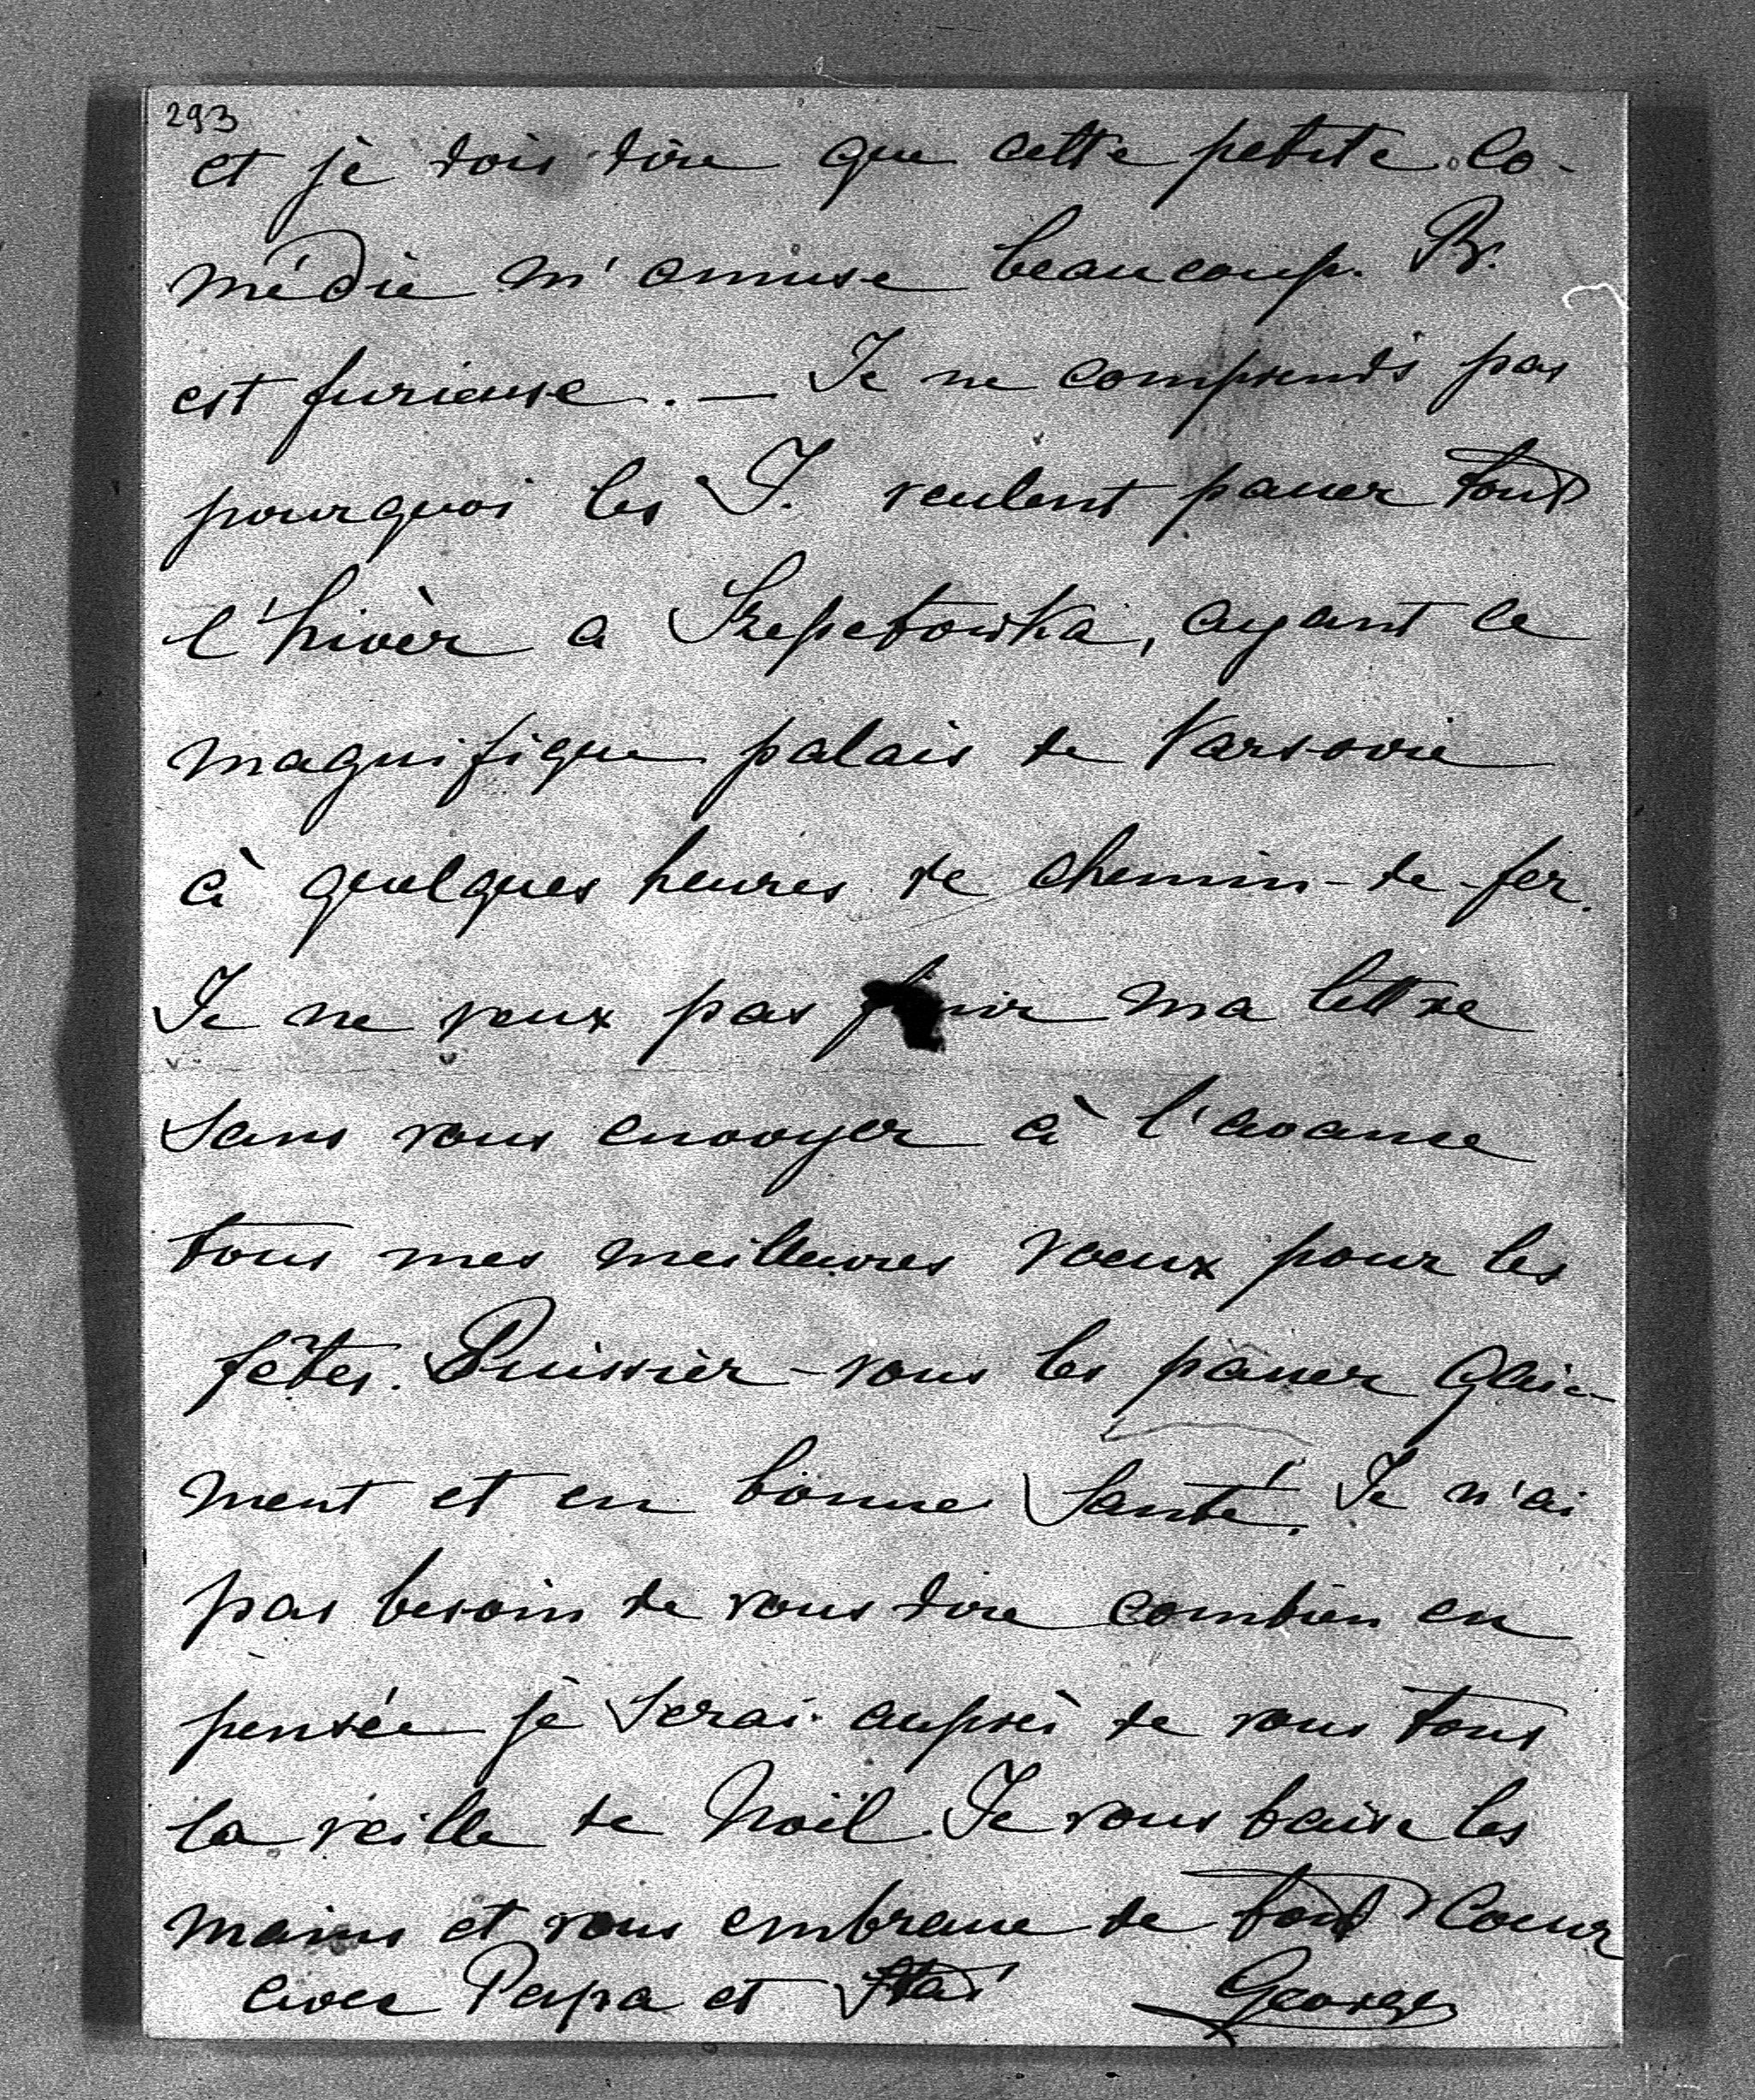 293
et je dois dire que cette petite co-
médie m'amuse beaucoup. B.
est furieuse. — Je ne comprends pas
pourquoi les J. veulent passer tout
l'hivèr a Szepetowka, ayant le
magnifique palais de Varsovie
à quelques heures de chemin-de-fer.
Je ne veux pas finir ma lettre
sans vous envoyer à l'avance
tous mes meilleures voeux pour les
fêtes. Puissièz-vous les passer gaie-
ment et en bonne santé. Je n'ai
pas besoin de vous dire combien en
pensée je serai auprès de vous tous
la veille de Noël. Je vous baise les
mains et vous embrasse de tout coeur
avec Papa et Staś Georges